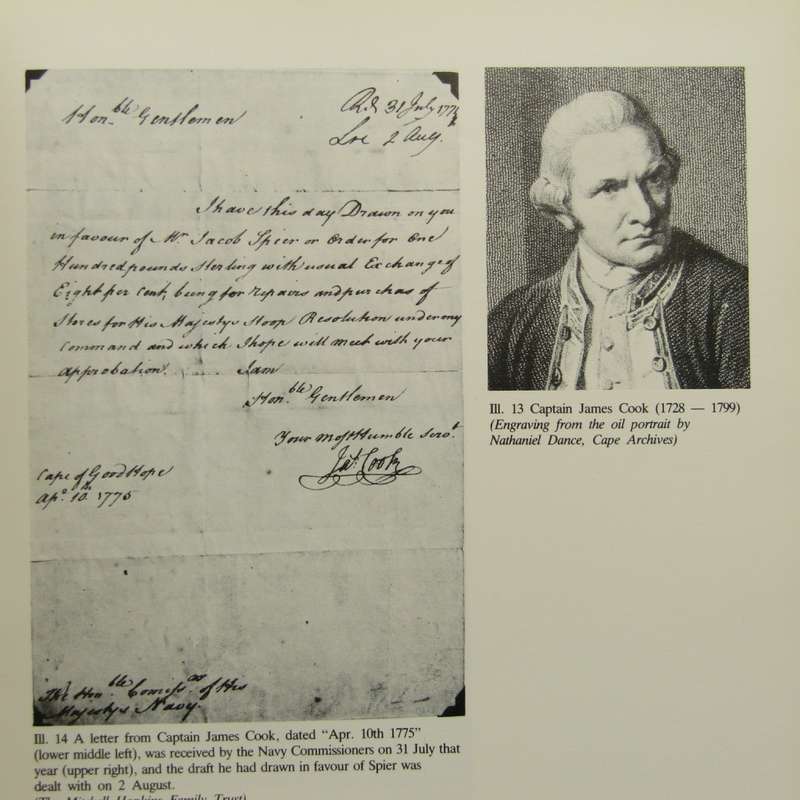 Hon.ble Gentlemen
Rd. 31 July 1775
2 Aug.
I have this day Drawn on you
in favour of Mr Jacob Speer or Order for One
Hundred pounds Sterling with usual Exchange of
Eight per Cent, being for repairs and purchas of
Stores for His Majestys Sloop Resolution under my
Command and which I hope will meet with your
approbation. I am
Hon.ble Gentlemen
Your most Humble Servt.
Jas. Cook
Cape of Good Hope
Apl. 10th 1775
The Honble Commissrs of His
Majestys Navy.
Ill. 13 Captain James Cook (1728 — 1799)
(Engraving from the oil portrait by
Nathaniel Dance, Cape Archives)
Ill. 14 A letter from Captain James Cook, dated “Apr. 10th 1775”
(lower middle left), was received by the Navy Commissioners on 31 July that
year (upper right), and the draft he had drawn in favour of Spier was
dealt with on 2 August.
(The Mitchell Hopkins Family Trust)